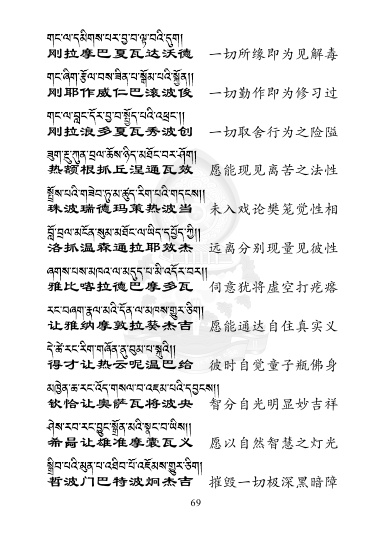 གང་ལ་དམིགས་པར་བྱ་བ་ལྟ་བའི་དུག།
刚拉摩巴夏瓦达沃德 一切所缘即为见解毒
གང་ཞིག་རྩོལ་བས་ཟིན་པ་སྒོམ་པའི་སྐྱོན།།
刚耶作威仁巴滚波俊 一切勤作即为修习过
གང་ལ་བླང་དོར་བྱ་བ་སྤྱོད་པའི་འཕྲང་།།
刚拉浪多夏瓦秀波创 一切取舍行为之险隘
ཟུག་རྔུ་ཀུན་བྲལ་ཆོས་ཉིད་མཐོང་བར་ཤོག།
热额根抓丘涅通瓦效 愿能现见离苦之法性
སྤྲོས་པའི་གཟེབ་ཏུ་མ་ཚུད་རིག་པའི་གདངས།།
珠波瑞德玛策热波当 未入戏论樊笼觉性相
བློ་བྲལ་མངོན་སུམ་མཐོང་ལ་ཡིད་དཔྱོད་ཀྱི།།
洛抓温森通拉耶效杰 远离分别现量见彼性
ཞགས་པས་མཁའ་ལ་མདུད་པ་མི་འདོར་བར།།
雅比喀拉德巴摩多瓦 何意犹将虚空打疙瘩
རང་བཞག་རྣལ་མའི་དོན་ལ་མཁས་གྱུར་ཅིག།
让雅纳摩敦拉葵杰吉 愿能通达自住真实义
དེ་ཚེ་རང་རིག་གཞོན་ནུ་བུམ་པ་སྐུའི།།
得才让热云呢温巴给 彼时自觉童子瓶佛身
མཁྱེན་ཆ་རང་འོད་གསལ་བ་འཇམ་པའི་དབྱངས།།
钦恰让奥萨瓦将波央 智分自光明显妙吉祥
ཤེས་རབ་རང་བྱུང་སྒྲོན་མའི་སྣང་བ་ཡིས།།
希局让雄准摩囊瓦义 愿以自然智慧之灯光
སྒྲིབ་པའི་མུན་པ་འཐིབ་པོ་འཇོམས་གྱུར་ཅིག།
哲波门巴特波炯杰吉 摧毁一切极深黑暗障
69